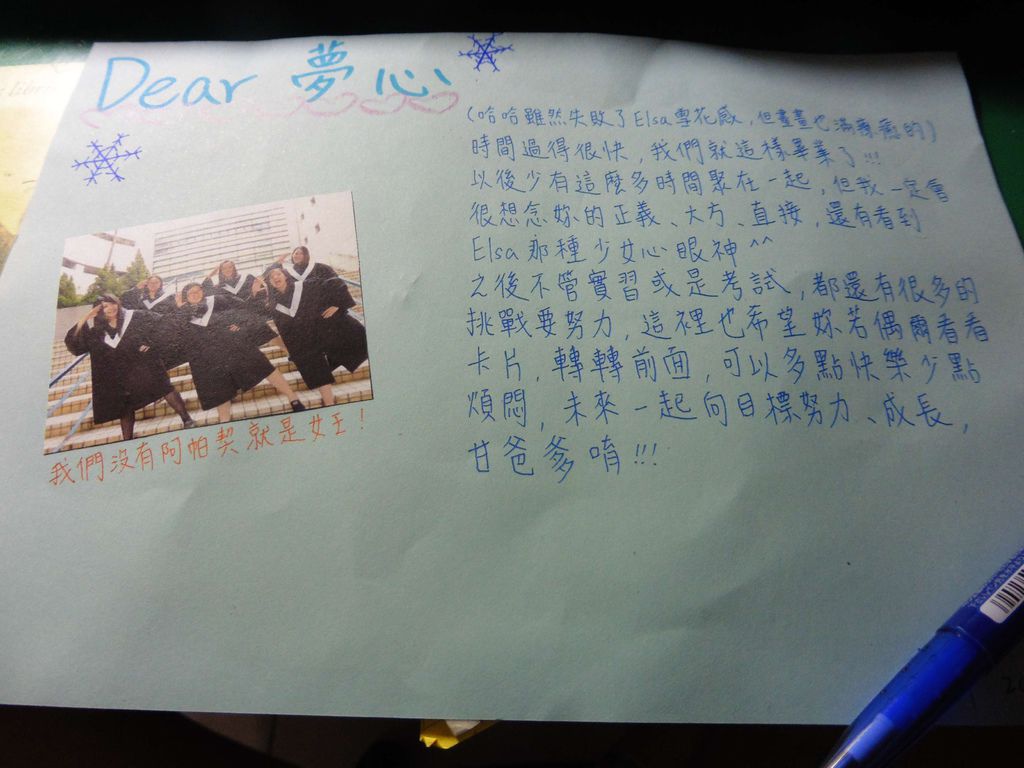 Dear 夢心
(哈哈雖然失敗了Elsa雪花感,但畫畫也滿療癒的)
時間過得很快,我們就這樣畢業了!!!
以後少有這麼多時間聚在一起,但我一定會
很想念妳的正義、大方、直接,還有看到
Elsa那種少女心眼神^^
之後不管實習或是考試,都還有很多的
挑戰要努力,這裡也希望妳若偶爾看看
卡片,轉轉前面,可以多點快樂少點
煩悶,未來一起向目標努力、成長,
甘爸爹唷!!!
我們沒有阿帕契就是女王!